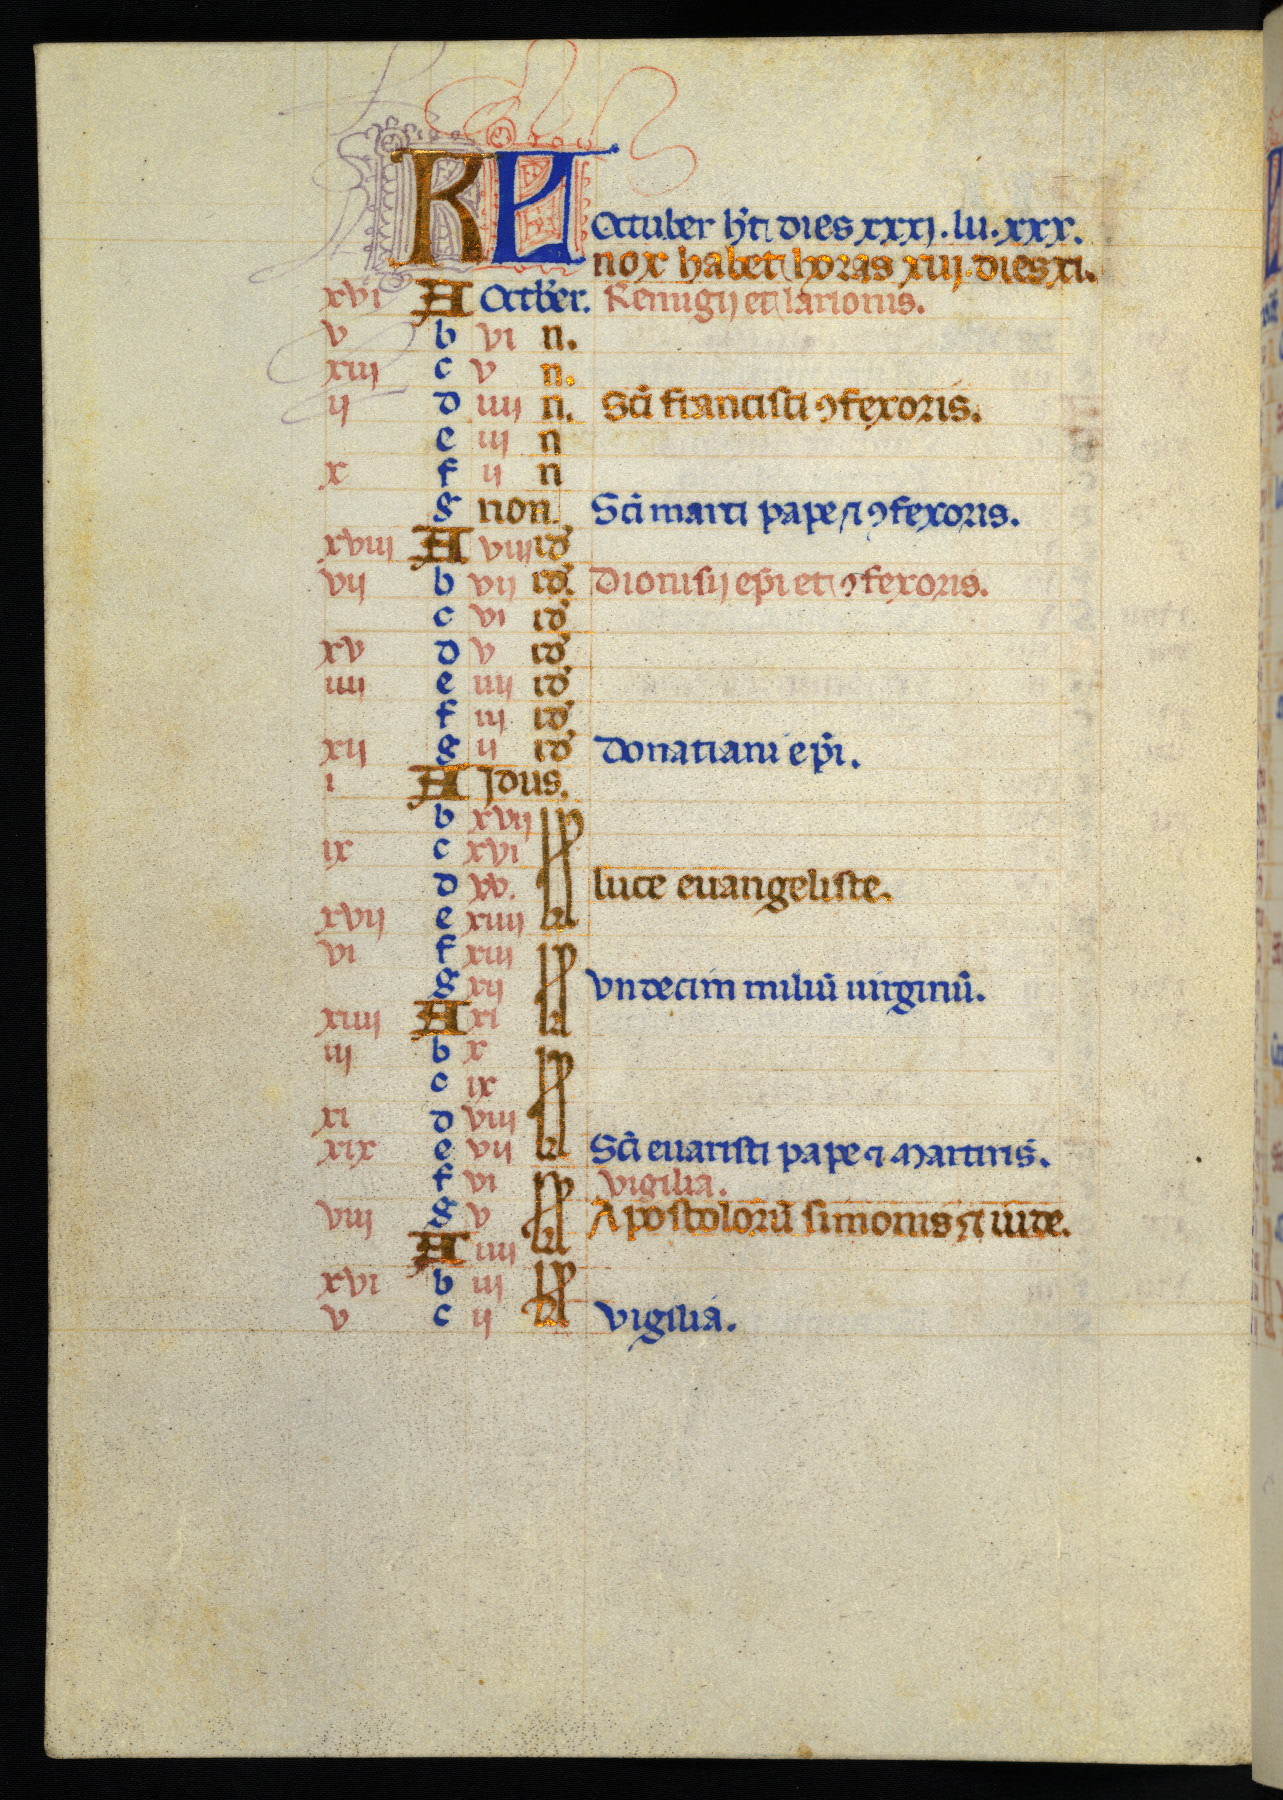 KL Octuber h't dies xxxj. lu. xxx.
nox habet horas xiij. dies xi.
xvi A Octber. Remigij et larionis.
v b vi n.
xiij c v n.
ij d iiij n. Sci francisci ꝯfexoris.
e iij n
x f ij n
g non. Sci marci pape ⁊ ꝯfexoris.
xviij A viij id'
vij b vij id'. Dionisij epi et ꝯfexoris.
c vi id'
xv d v id'
iiij e iiij id'
f iij id'
xij g ij id' Donatiani epi.
i A Idus.
b xvij
ix c xvi kl
d xv. luce euangeliste.
xvij e xiiij
vi f xiij
g xij kl vndecim miliū uirginū.
xiiij A xi
iij b x
c ix kl
xi d viij
xix e vij Sci euaristi pape ⁊ Martiris.
f vi vigilia.
viij g v kl Apostolorū simonis ⁊ iude.
A iiij
xvi b iij kl
v c ij vigilia.